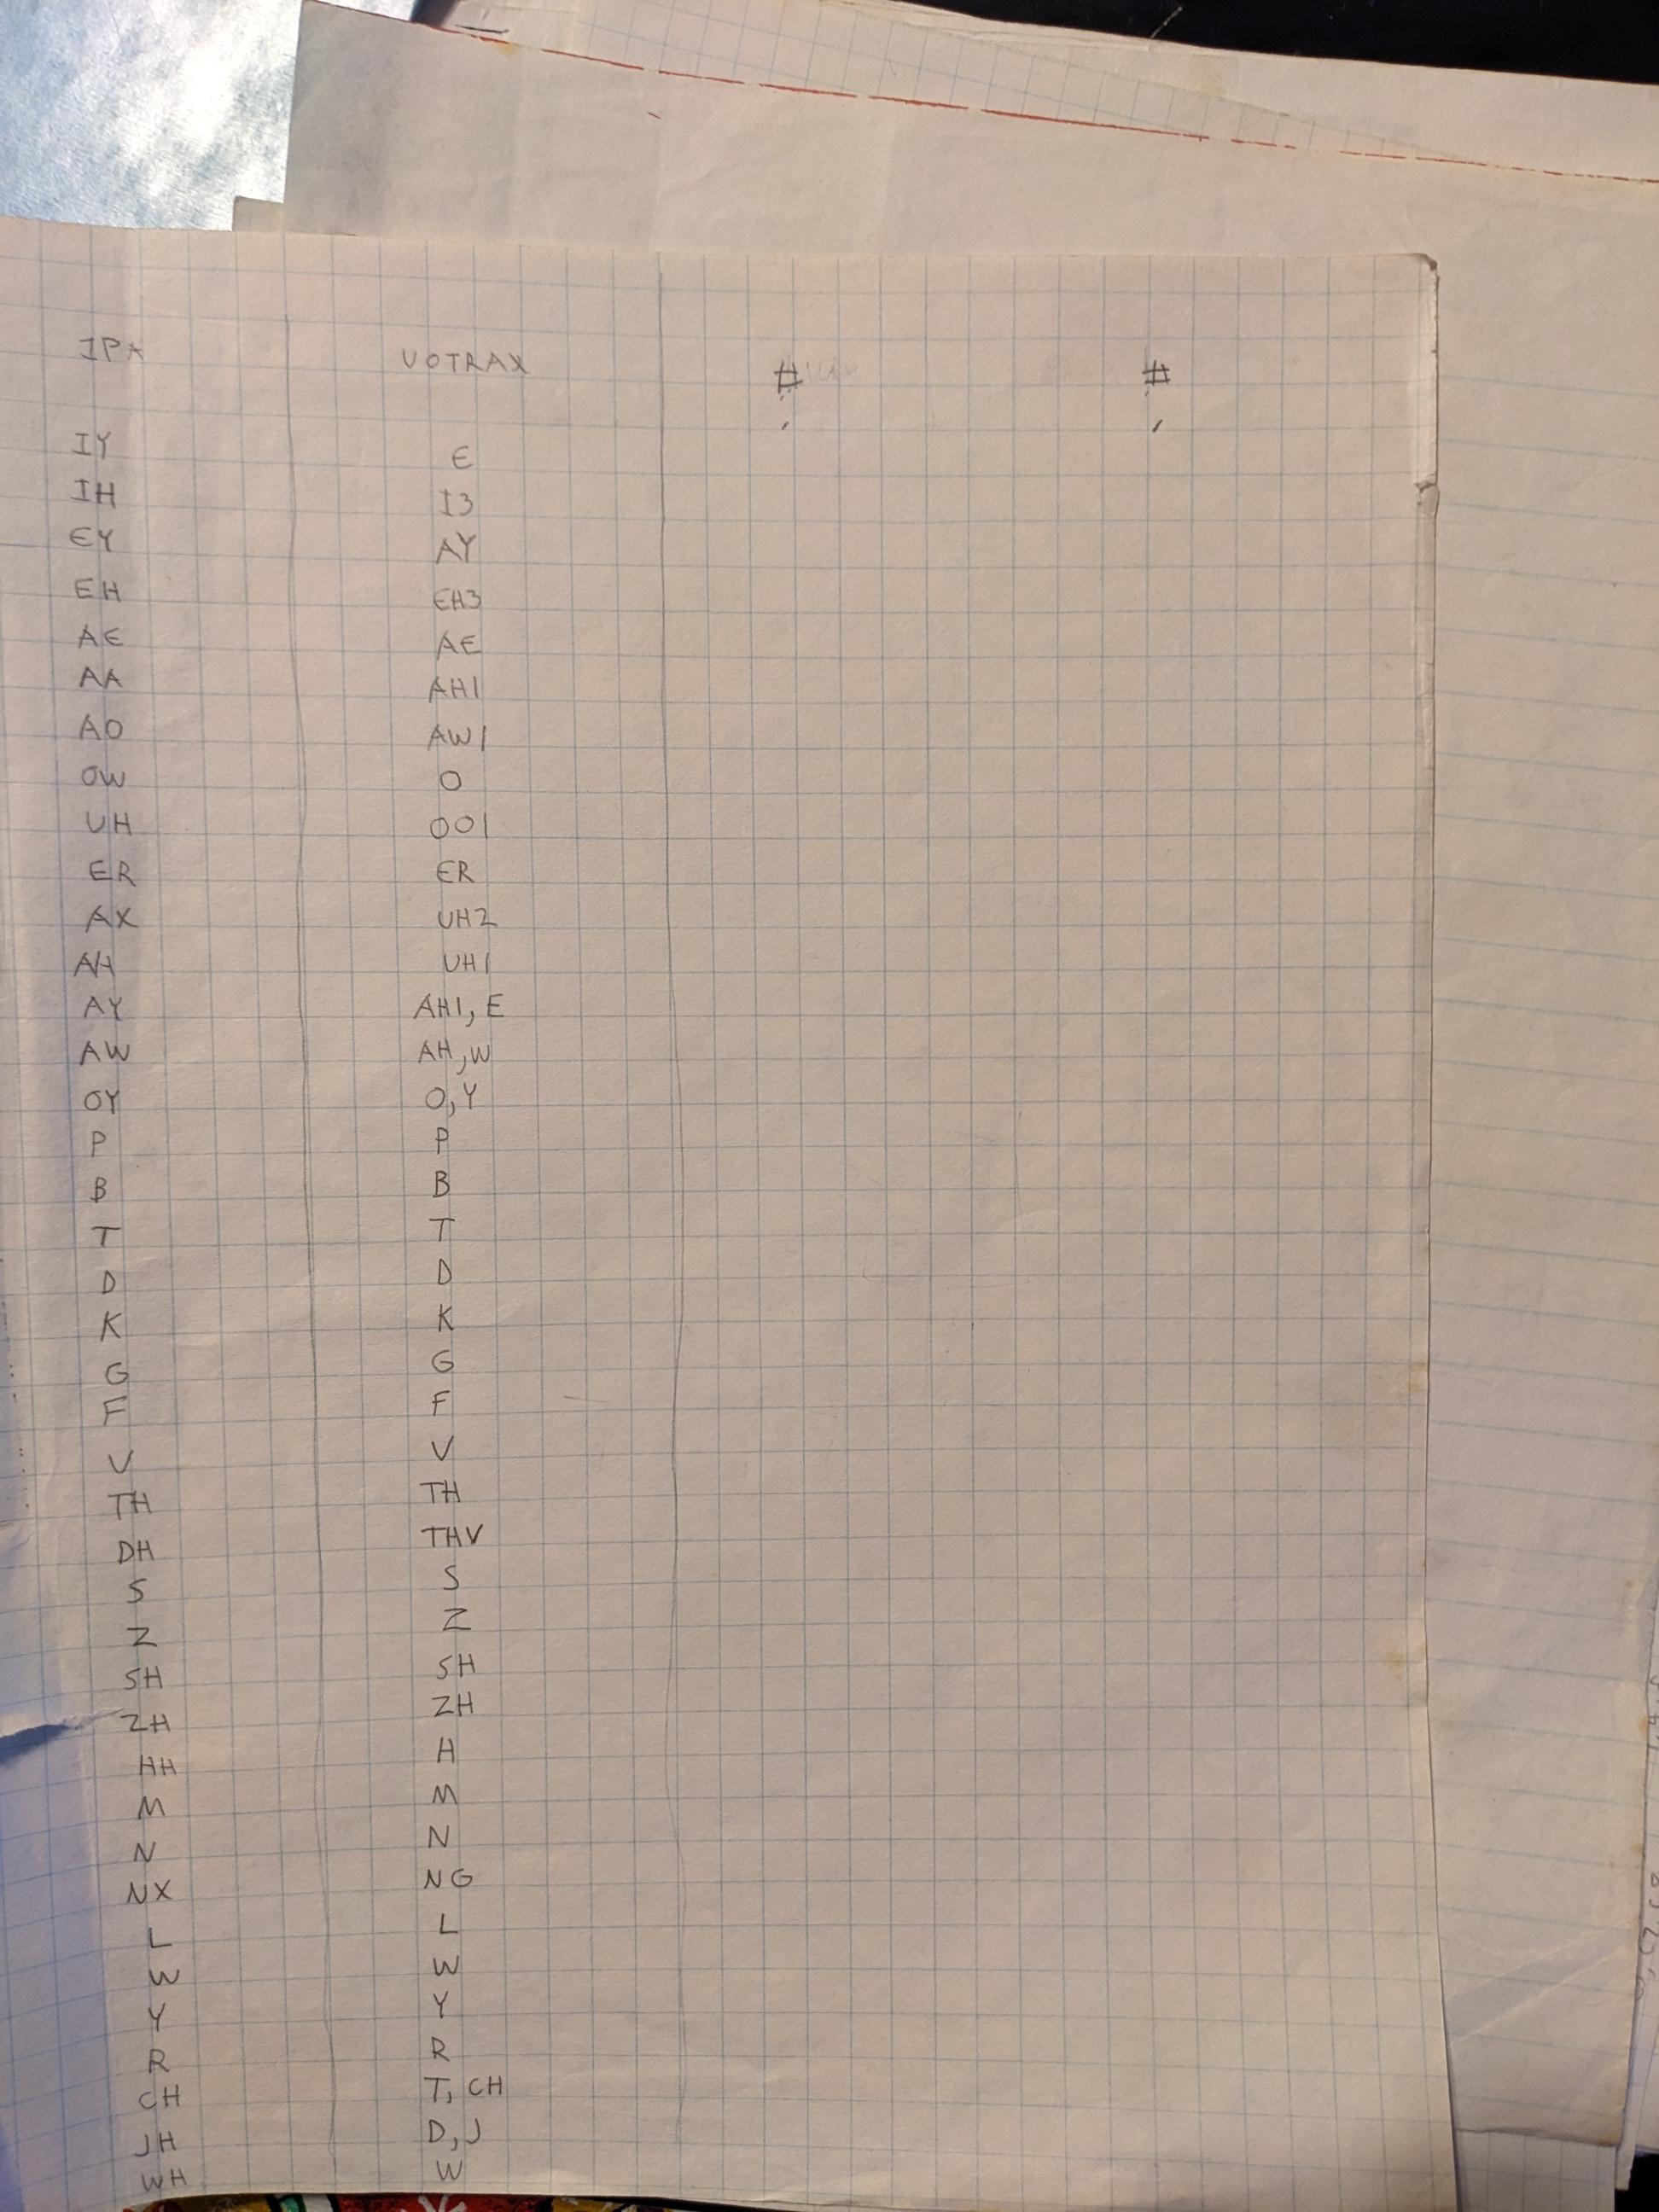 IPA VOTRAX # #
IY E
IH I3
EY AY
EH EH3
AE AE
AA AH1
AO AW1
OW O
UH OO1
ER ER
AX UH2
AH UH1
AY AH1, E
AW AH, W
OY O, Y
P P
B B
T T
D D
K K
G G
F F
V V
TH TH
DH THV
S S
Z Z
SH SH
ZH ZH
HH H
M M
N N
NX NG
L L
W W
Y Y
R R
CH T, CH
JH D, J
WH W